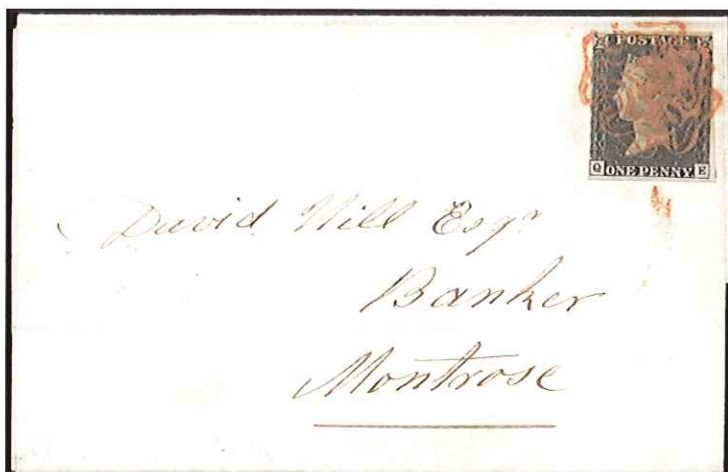 POSTAGE
Q ONE PENNY E
David Hill Esqr
Banker
Montrose